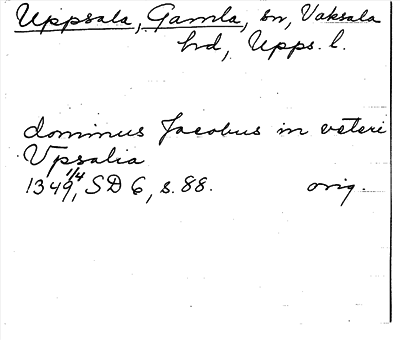 Uppsala, Gamla, sn, Vaksala
hd, Upps. l.
dominus Jacobus in veteri
Vpsalia
1349 1/4, SD 6, s. 88. orig.